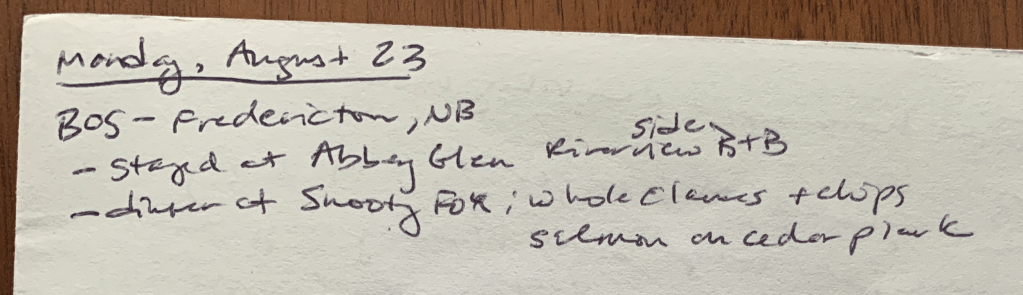 Monday, August 23
BOS - Fredericton, NB
- stayed at Abbey Glen Riverview B+B
side
- dinner at Snooty Fox; whole clams + chips
salmon on cedar plank